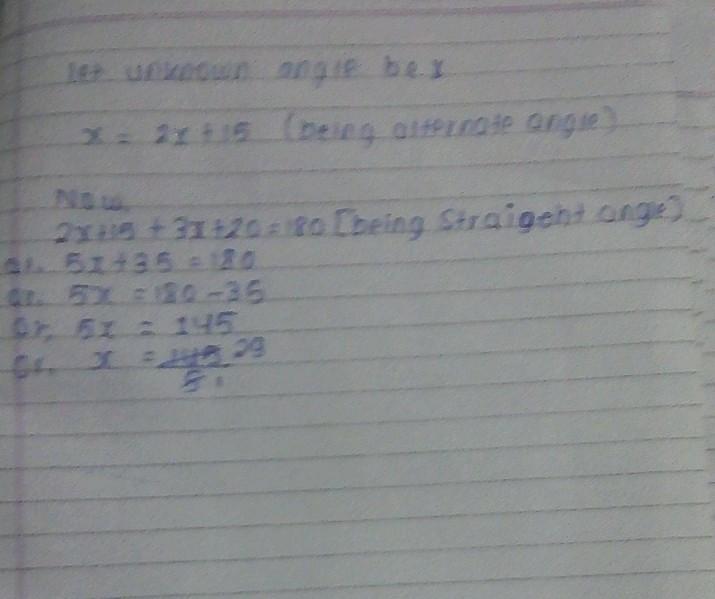 let unknown angle be x
x = 2x+15 (being alternate angle)
Now,
2x+15 + 3x+20 = 180 [being Straigent angle)
or, 5x+35 = 180
or, 5x = 180-35
or, 5x = 145
or, x = 145 29
5 1